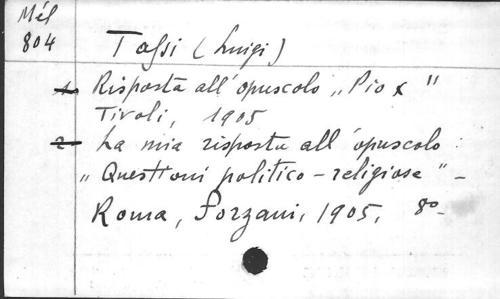 Mél
804
Tassi (Luigi)
1 Risposta all'opuscolo „Pio X"
Tivoli, 1905
2 La mia risposta all'opuscolo:
„Questioni politico-religiose" –
Roma, Forzani, 1905, 8º-